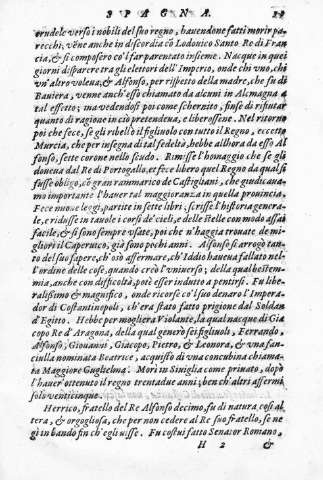 SPAGNA.
crudele verso i nobili del suo regno, hauendone fatti morir parecchi
recchi, vēne anche in discordia cō Lodouico Santo Re di Francia
cia, & si composero co'l far parentato insieme. Nacque in quei
giorni disparere tra gli elettori dell'Imperio, onde chi vno, chi
vn'altro voleua, & Alfonso, per rispetto della madre, che fu di
Bauiera, venne anch'esso chiamato da alcuni in Alemagna a
tal effetto; ma vedendosi poi come schernito, finse di rifiutar
quanto di ragione in ciò pretendeua, e liberossene. Nel ritorno
poi che fece, se gli ribellò il figliuolo con tutto il Regno, eccetto
Murcia, che per insegna di tal fedeltà, hebbe allhora da esso Al
fonso, sette corone nello scudo. Rimisse l'homaggio che se gli
doueua dal Re di Portogallo, et fece libero quel Regno da qual si
fusse obligo, cō gran rammarico de Castigliani, che giudicauamo
mo importante l'hauer tal maggioranza in quella prouincia.
Fece noue leggi, partite in sette libri; scrisse l'historia generale
le, e ridusse in tauole i corsi de'cieli, e delle stelle con modo assai
facile, & si sono sempre vsate, poi che n'haggia trouate de migliori
gliori il Copernico, già sono pochi anni. Alfonso si arrogò tanto
to del suo sapere, ch'osò affermare, ch'Iddio haueua fallato nel
l'ordine delle cose, quando creò l'vniuerso; della qual bestemmia
mia, anche con difficoltà, potè esser indutto a pentirsi. Fu liberalissimo
ralissimo & magnifico, onde ricorse co'l suo denaro l'Imperador
dor di Costantinopoli, ch'era stato fatto prigione dal Soldan
d'Egitto. Hebbe per mogliera Violante, la qual nacque di Giacopo
copo Re d'Aragona, della qual generò sei figliuoli, Ferrando,
Alfonso, Giouanni, Giacopo, Pietro, & Leonora, & vna fanciulla
ciulla nominata Beatrice, acquistò di vna concubina chiamata
ta Maggiore Guglielma. Morì in Siuiglia come priuato, dopo
l'hauer ottenuto il regno trentadue anni; ben ch'altri affermi
solo venticinque.
Herrico, fratello del Re Alfonso decimo, fu di natura così altera
tera, & orgogliosa, che per non cedere al Re suo fratello, se ne
gì in bando fin ch'egli visse. Fu costui fatto Senator Romano,
H 2 &